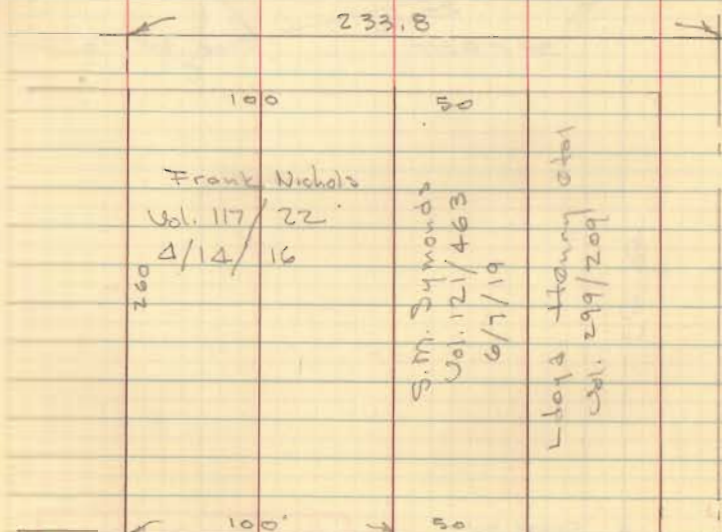 233.8
100
50
Frank Nichols
Vol. 117/22
4/14/16
260
S.M. Symonds
Vol. 121/463
6/7/19
Lloyd Henry etal
Vol. 299/209
100'
50